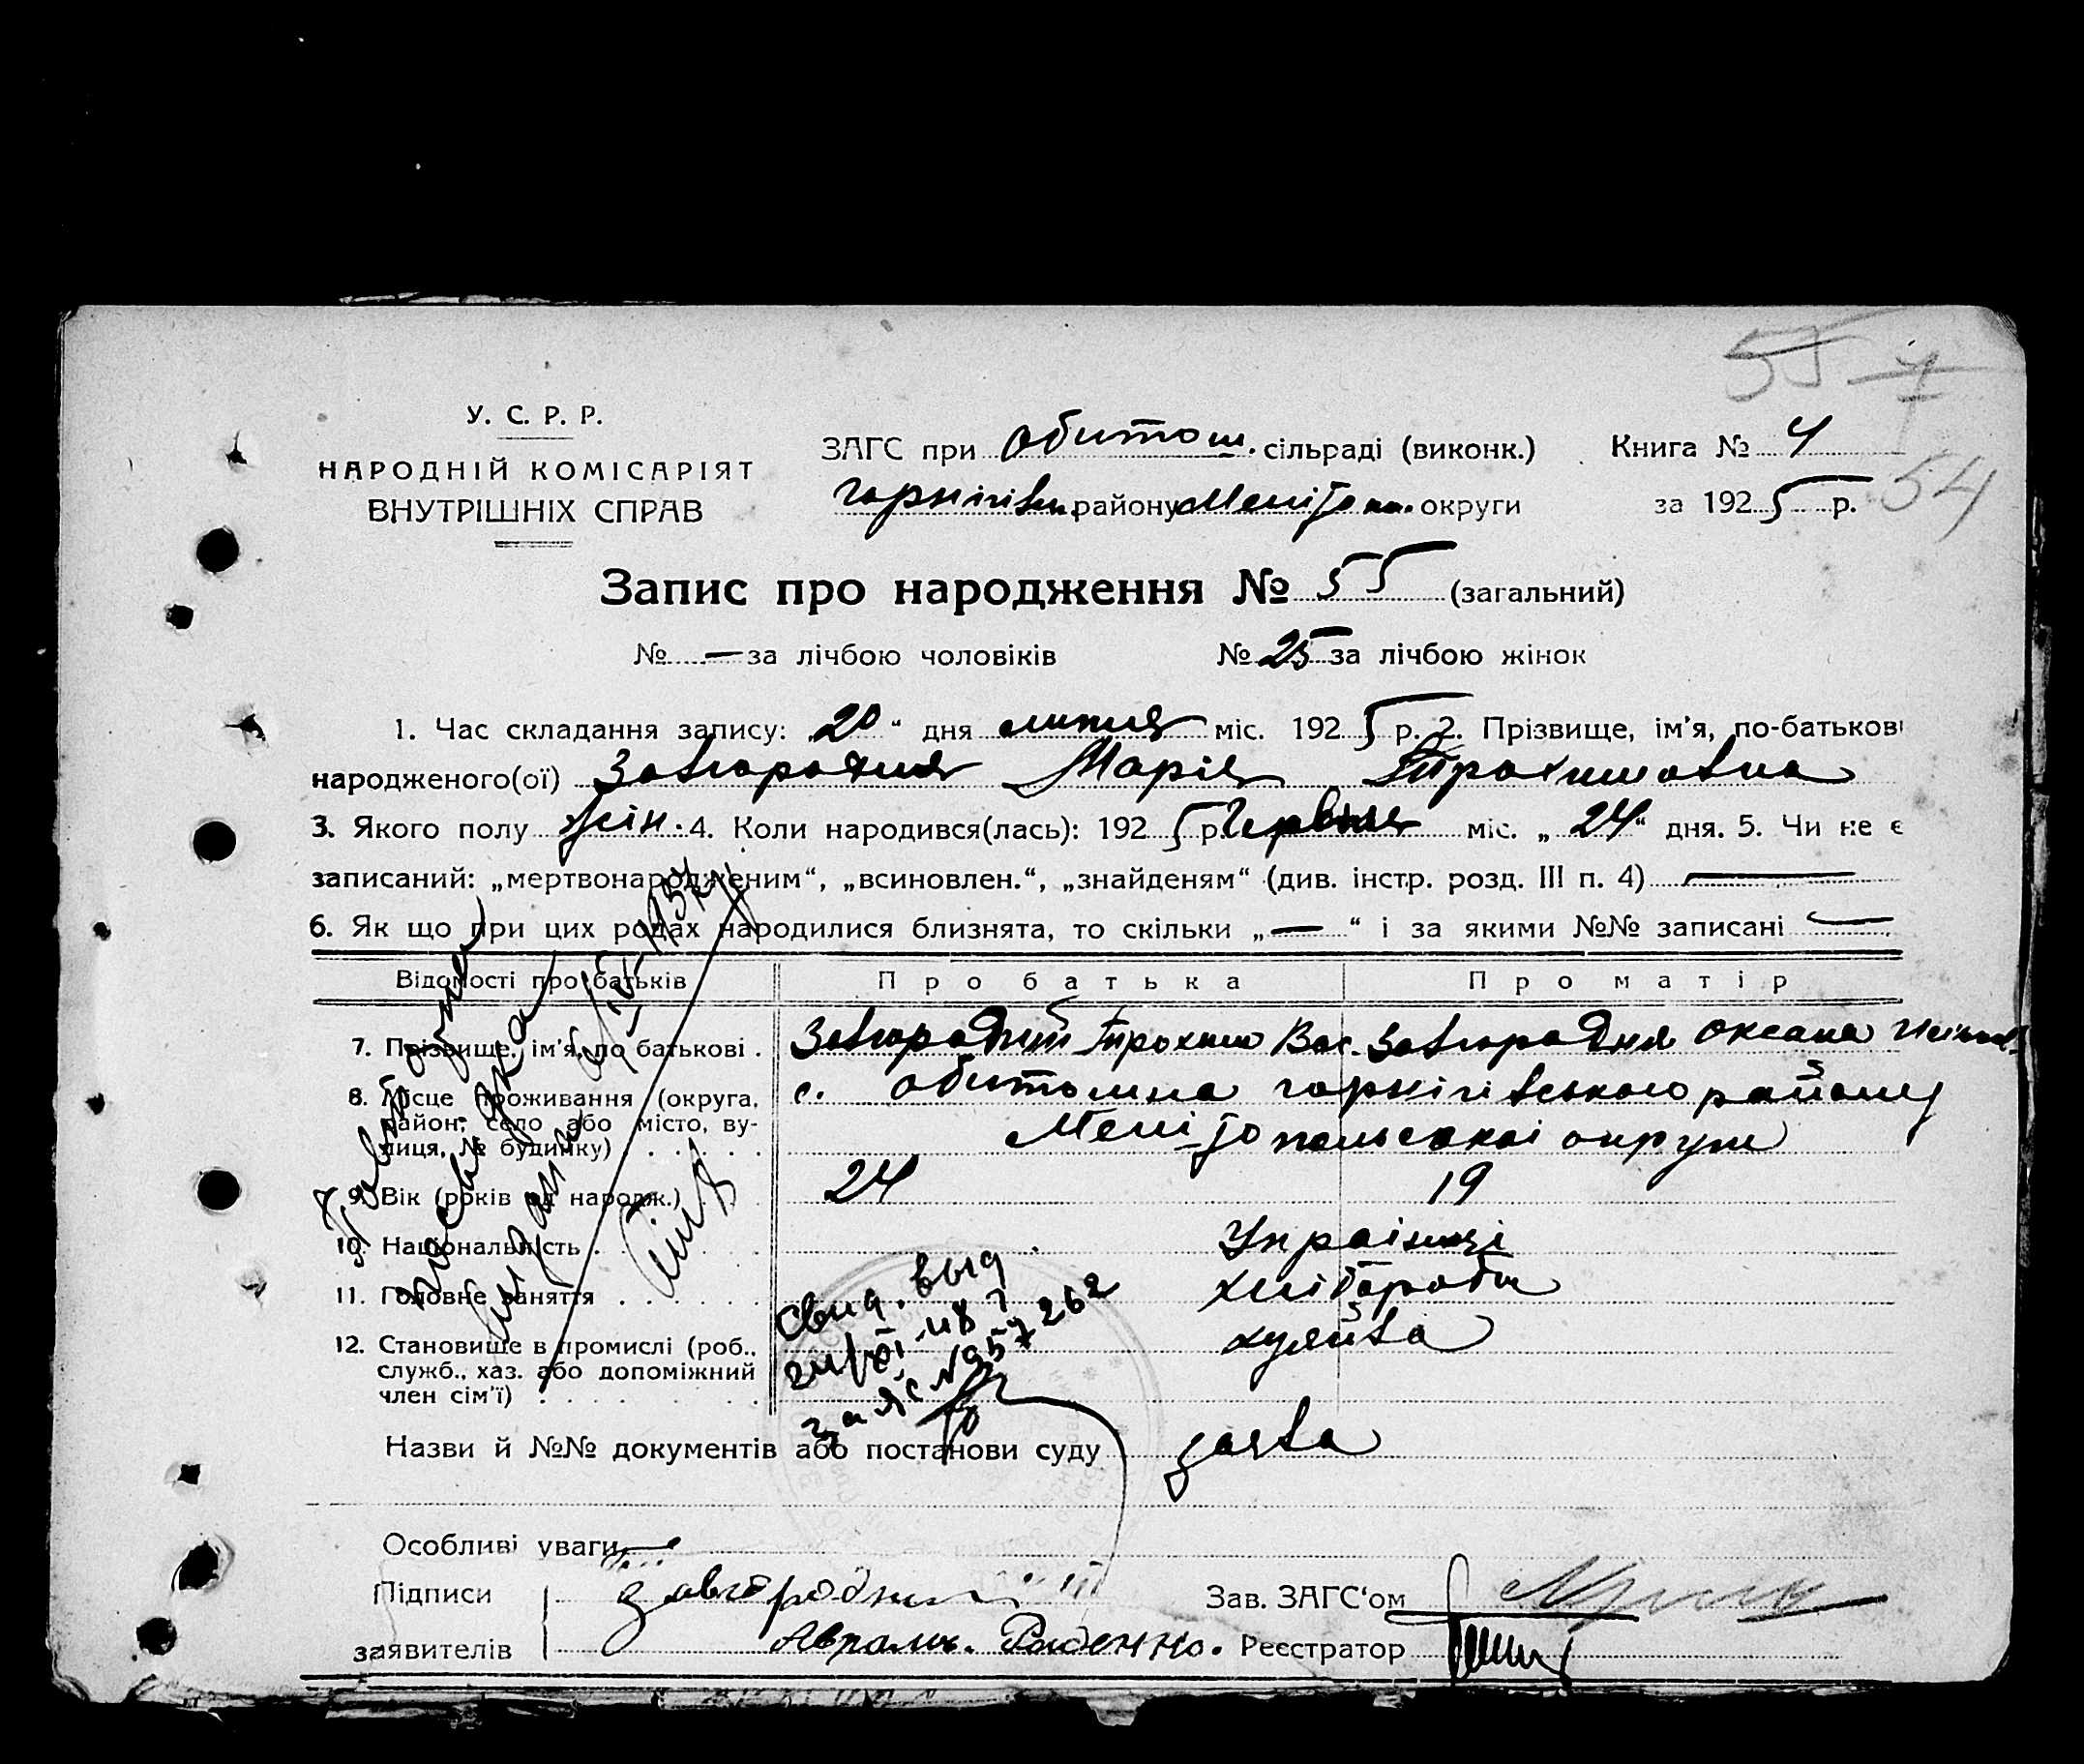 55 4
У. С. Р. Р.
НАРОДНІЙ КОМІСАРІЯТ
ВНУТРІШНІХ СПРАВ
ЗАГС при Обиточ. сільраді (виконк.)
Чернігівськ. району Меліто п. округи
Книга № 4
за 1925 р.
54
Запис про народження № 55 (загальний)
№ — за лічбою чоловіків № 25 за лічбою жінок
1. Час складання запису: 20 “ дня липня міс. 1925 р. 2. Прізвище, ім'я, по-батькові
народженого(ої) Завгородня Марія Трохимовна
3. Якого полу жін. 4. Коли народився(лась): 1925 р. Червня міс. „ 24 “ дня. 5. Чи не є
записаний: „мертвонародженим“, „всиновлен.“, „знайденям“ (див. інстр. розд. III п. 4) —
6. Як що при цих родах народилися близнята, то скільки „ — “ і за якими №№ записані —
Відомості про батьків Про батька Про матір
7. Прізвище, ім'я, по батькові . Завгородній Трохим Вас. Завгородня Оксана
8. Місце проживання (округа, район, село або місто, вулиця, № будинку) с. Обиточна Чернігівського району
Мелітопольскої округи
9. Вік (років од народж.) 24 19
10. Національність . Українці
11. Головне заняття . . . . хлібороби
12. Становище в промислі (роб., служб., хаз. або допоміжний член сім'ї) хазяйва
Свид. выд
№957262
Назви й №№ документів або постанови суду заява
Особливі уваги —
Підписи
заявителів
Завгородний
Аврам. Руденко.
Зав. ЗАГС'ом
Реєстратор